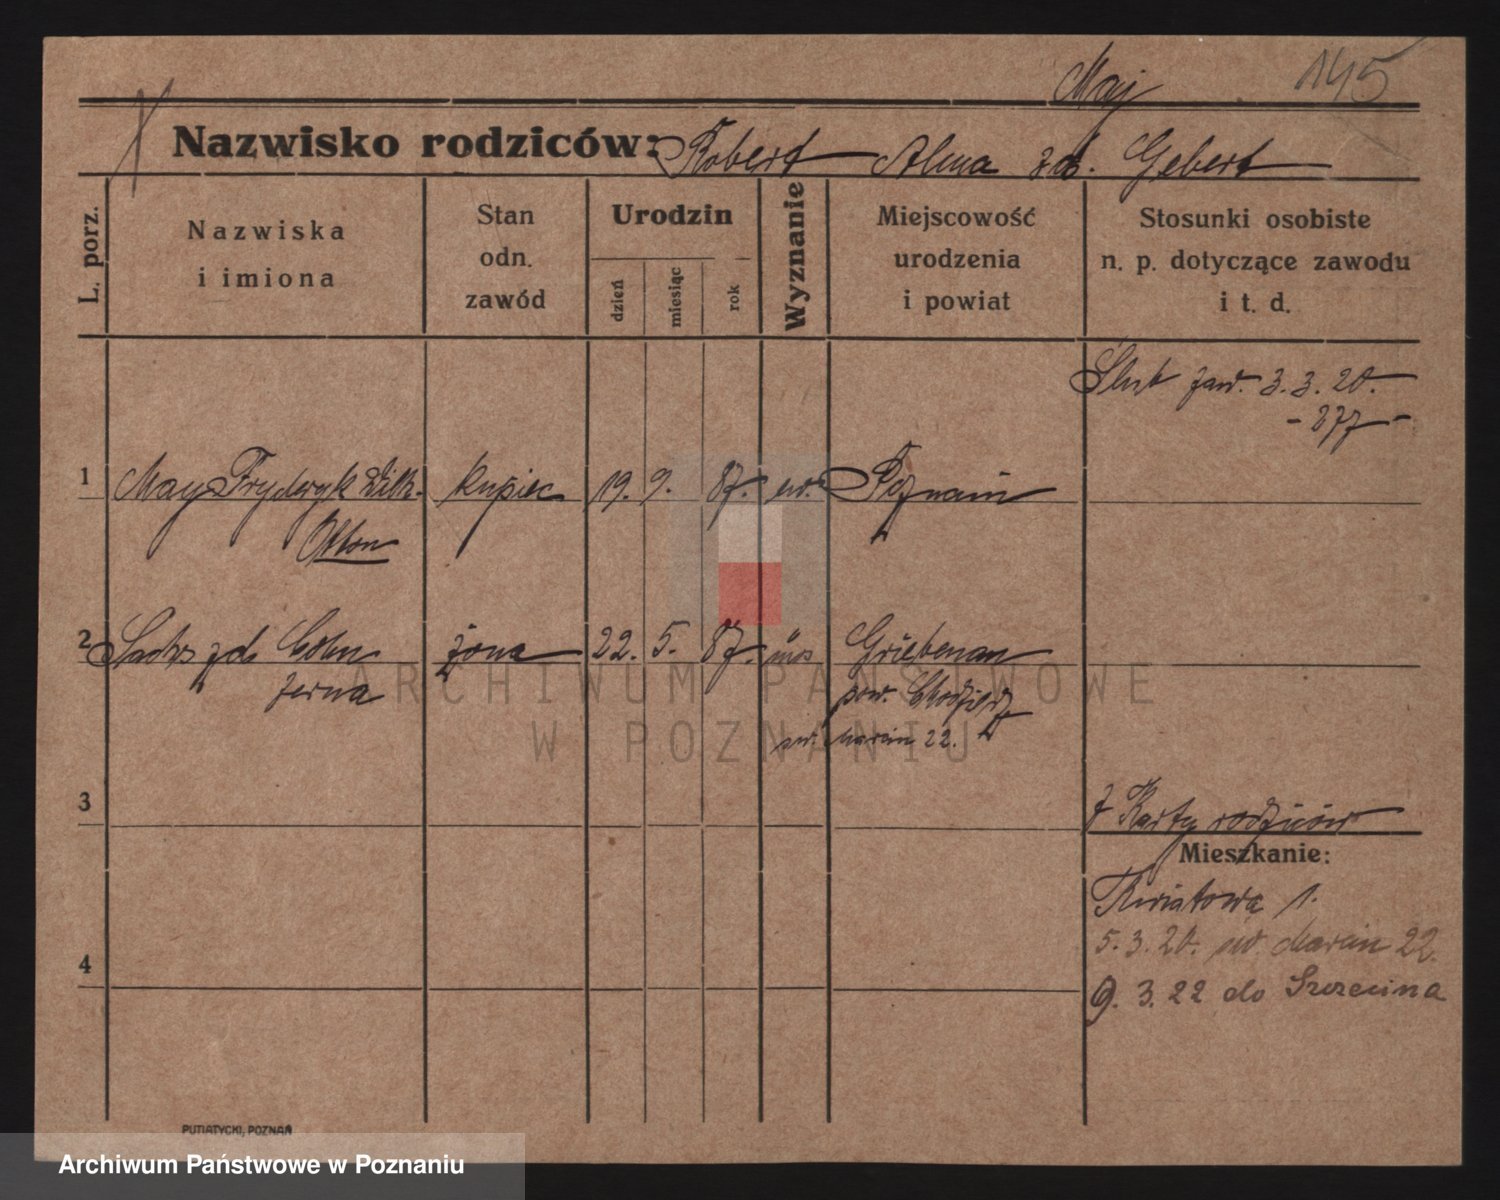 Maj 145
Nazwisko rodziców: Robert Alma zd. Gebert
L. porz.
Nazwiska
i imiona
Stan
odn.
zawód
Urodzin
dzień
miesiąc
rok
Wyznanie
Miejscowość
urodzenia
i powiat
Stosunki osobiste
n. p. dotyczące zawodu
i t. d.
Ślub zaw. 3.3.20.
- 277 -
1 May Fryderyk Wilh. kupiec 19. 9. 87. ew. Poznań
Otton
2 Sachs zd. Cohn żona 22. 5. 87. moj. Griebenau
pow. Chodzież
św. Marcin 22.
3
z Karty rodziców
Mieszkanie:
Kwiatowa 1.
5.3.20. św. Marcin 22.
4
9.3.22 do Szczecina
ARCHIWUM PAŃSTWOWE
W POZNANIU
PUTIATYCKI, POZNAŃ
Archiwum Państwowe w Poznaniu